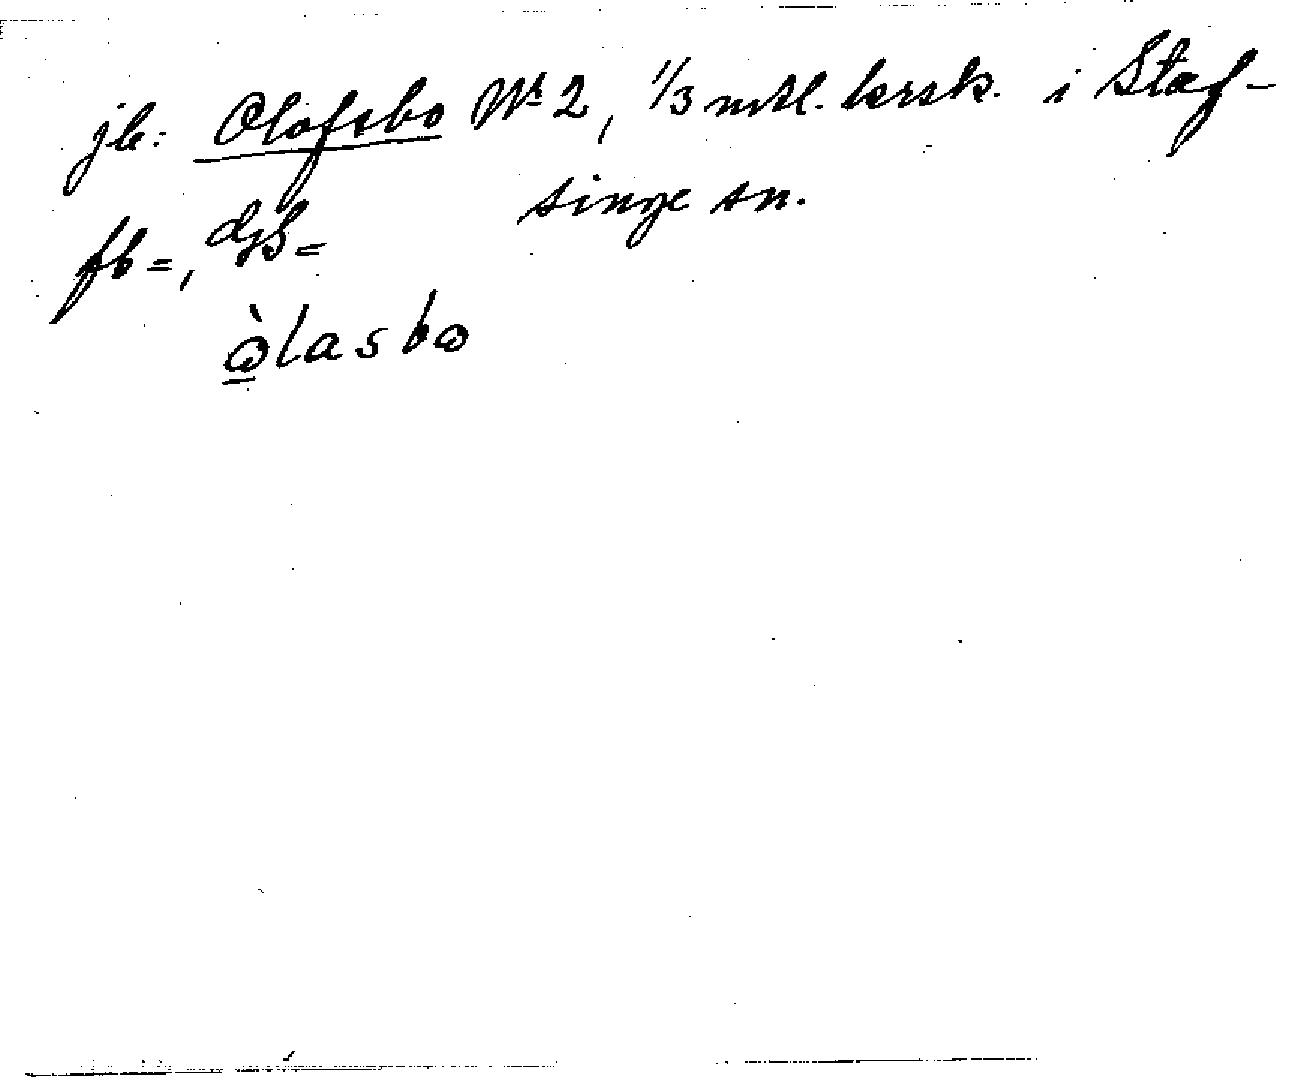 jb: Olofsbo Nr 2, 1/3 mtl. krsk. i Staf-
singe sn.
fb =, dgb =
ὼ̲lasbω